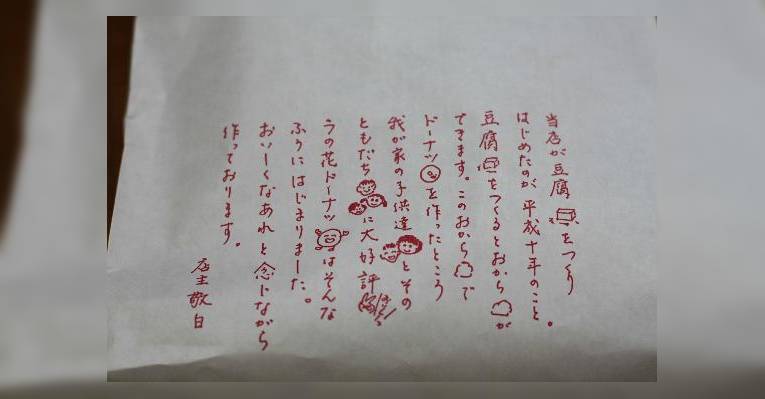 当店が豆腐をつくり
はじめたのが平成十年のこと。
豆腐をつくるとおからが
できます。このおからで
ドーナツを作ったところ
我が家の子供達とその
ともだちに大好評
うの花ドーナツはそんな
ふうにはじまりました。
おいしくなあれと念じながら
作っております。
店主敬白